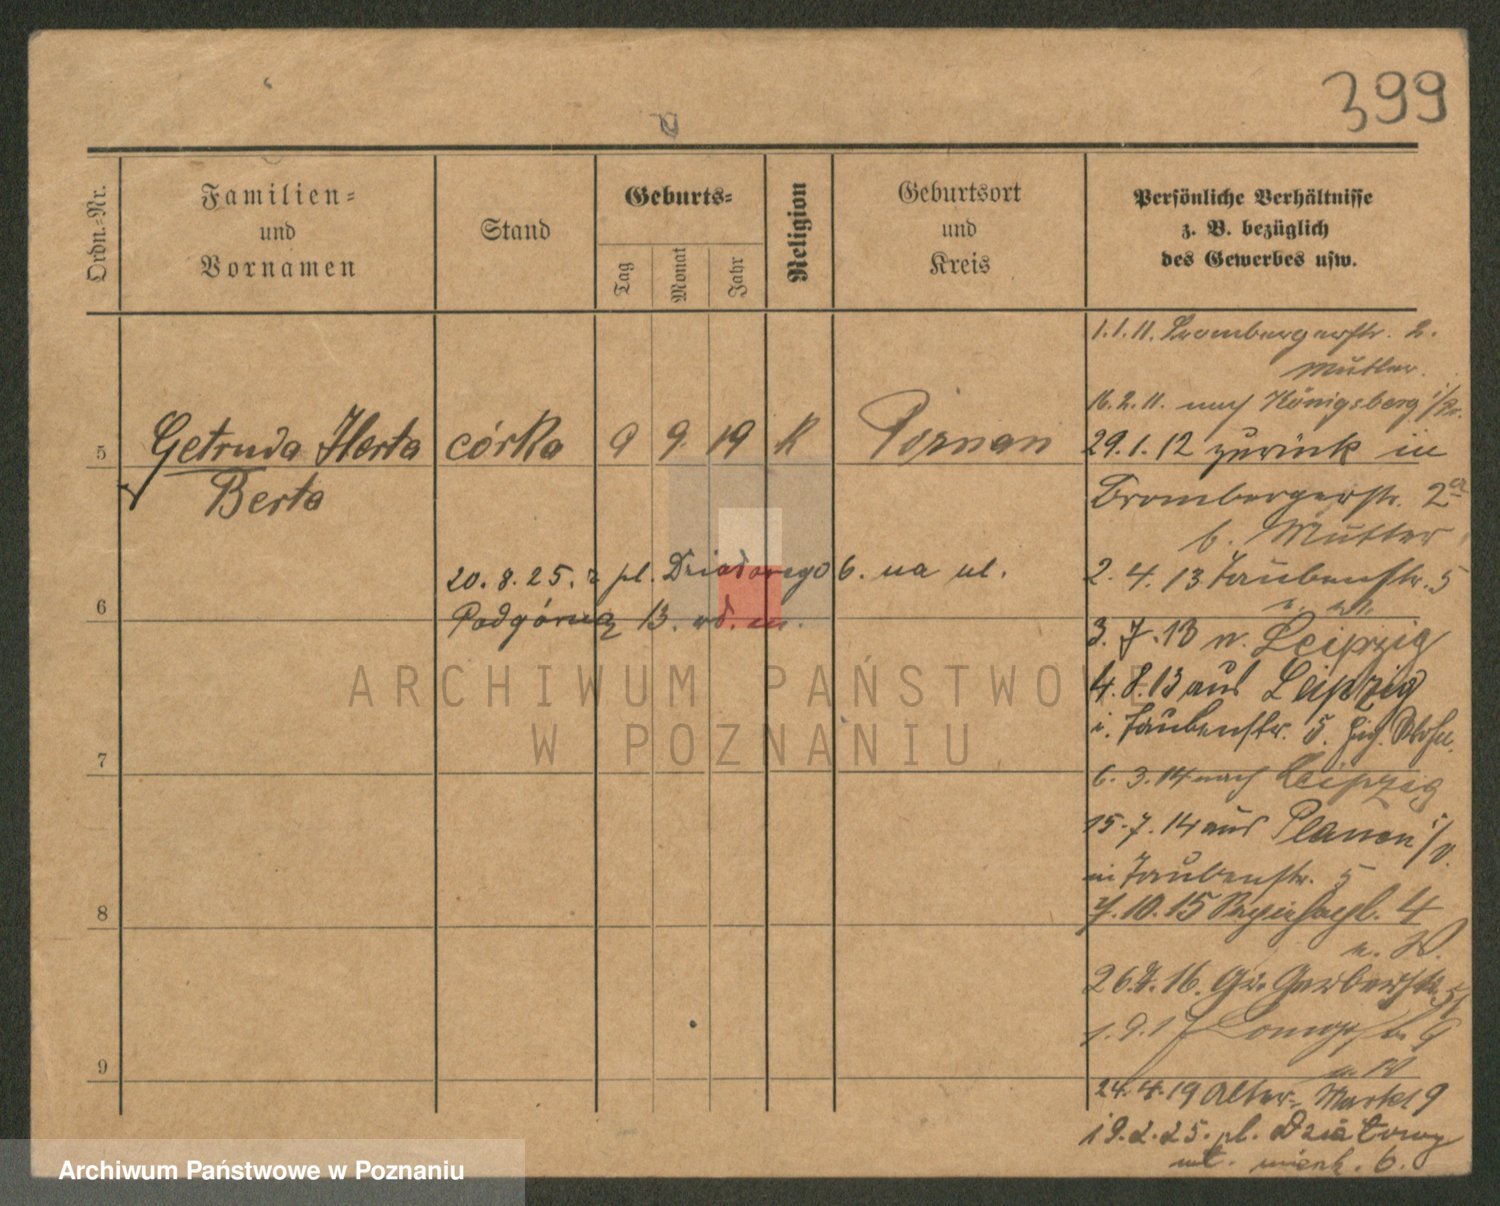 399
Ordn.=Nr.
Familien=
und
Vornamen
Stand
Geburts=
Tag
Monat
Jahr
Religion
Geburtsort
und
Kreis
Persönliche Verhältnisse
z. B. bezüglich
des Gewerbes usw.
5
Getruda Herta córka 9 9. 19 k Poznan
Berta
20.8.25. z pl. Działowego 6. na ul.
6
Podgórną 13. od. m.
7
8
9
1.1.11. Brombergerstr. 2.
Mutter.
16.2.11. nach Königsberg i/Pr.
29.1.12 zurück in
Brombergerstr. 2a
b. Mutter
2.4.13 Taubenstr. 5
3.7.13 n. Leipzig
4.8.13 aus Leipzig
i. Taubenstr. 5.
6.3.14 nach Leipzig
15.7.14 aus Plauen i/V.
in Taubenstr. 5
7.10.15 4
26.7.16. Gr. Gerberstr.
1.9.17 9
24.4.19 Alter-Markt 9
19.2.25. pl. Działowy
m. 6.
ARCHIWUM PAŃSTWOWE
W POZNANIU
Archiwum Państwowe w Poznaniu